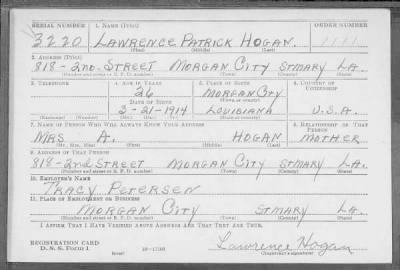 SERIAL NUMBER 1. NAME (Print) ORDER NUMBER
3220 LAWRENCE PATRICK HOGAN.
(First) (Middle) (Last)
2. ADDRESS (Print)
818-2nd. STREET MORGAN CITY STMARY LA.
(Number and street or R. F. D. number) (Town) (County) (State)
3. TELEPHONE 4. AGE IN YEARS 5. PLACE OF BIRTH 6. COUNTRY OF CITIZENSHIP
26 MORGAN CITY
DATE OF BIRTH (Town or county)
3-21-1914 LOUISIANA U.S.A.
(Exchange) (Number) (Mo.) (Day) (Yr.) (State or country)
7. NAME OF PERSON WHO WILL ALWAYS KNOW YOUR ADDRESS 8. RELATIONSHIP OF THAT PERSON
MRS A. HOGAN MOTHER
(Mr., Mrs., Miss) (First) (Middle) (Last)
9. ADDRESS OF THAT PERSON
818-2nd STREET MORGAN CITY STMARY LA.
(Number and street or R. F. D. number) (Town) (County) (State)
10. EMPLOYER'S NAME
TRACY PETERSEN
11. PLACE OF EMPLOYMENT OR BUSINESS
MORGAN CITY STMARY LA.
(Number and street or R. F. D. number) (Town) (County) (State)
I AFFIRM THAT I HAVE VERIFIED ABOVE ANSWERS AND THAT THEY ARE TRUE.
REGISTRATION CARD
D. S. S. Form 1 (over) Lawrence Hogan
(Registrant's signature)